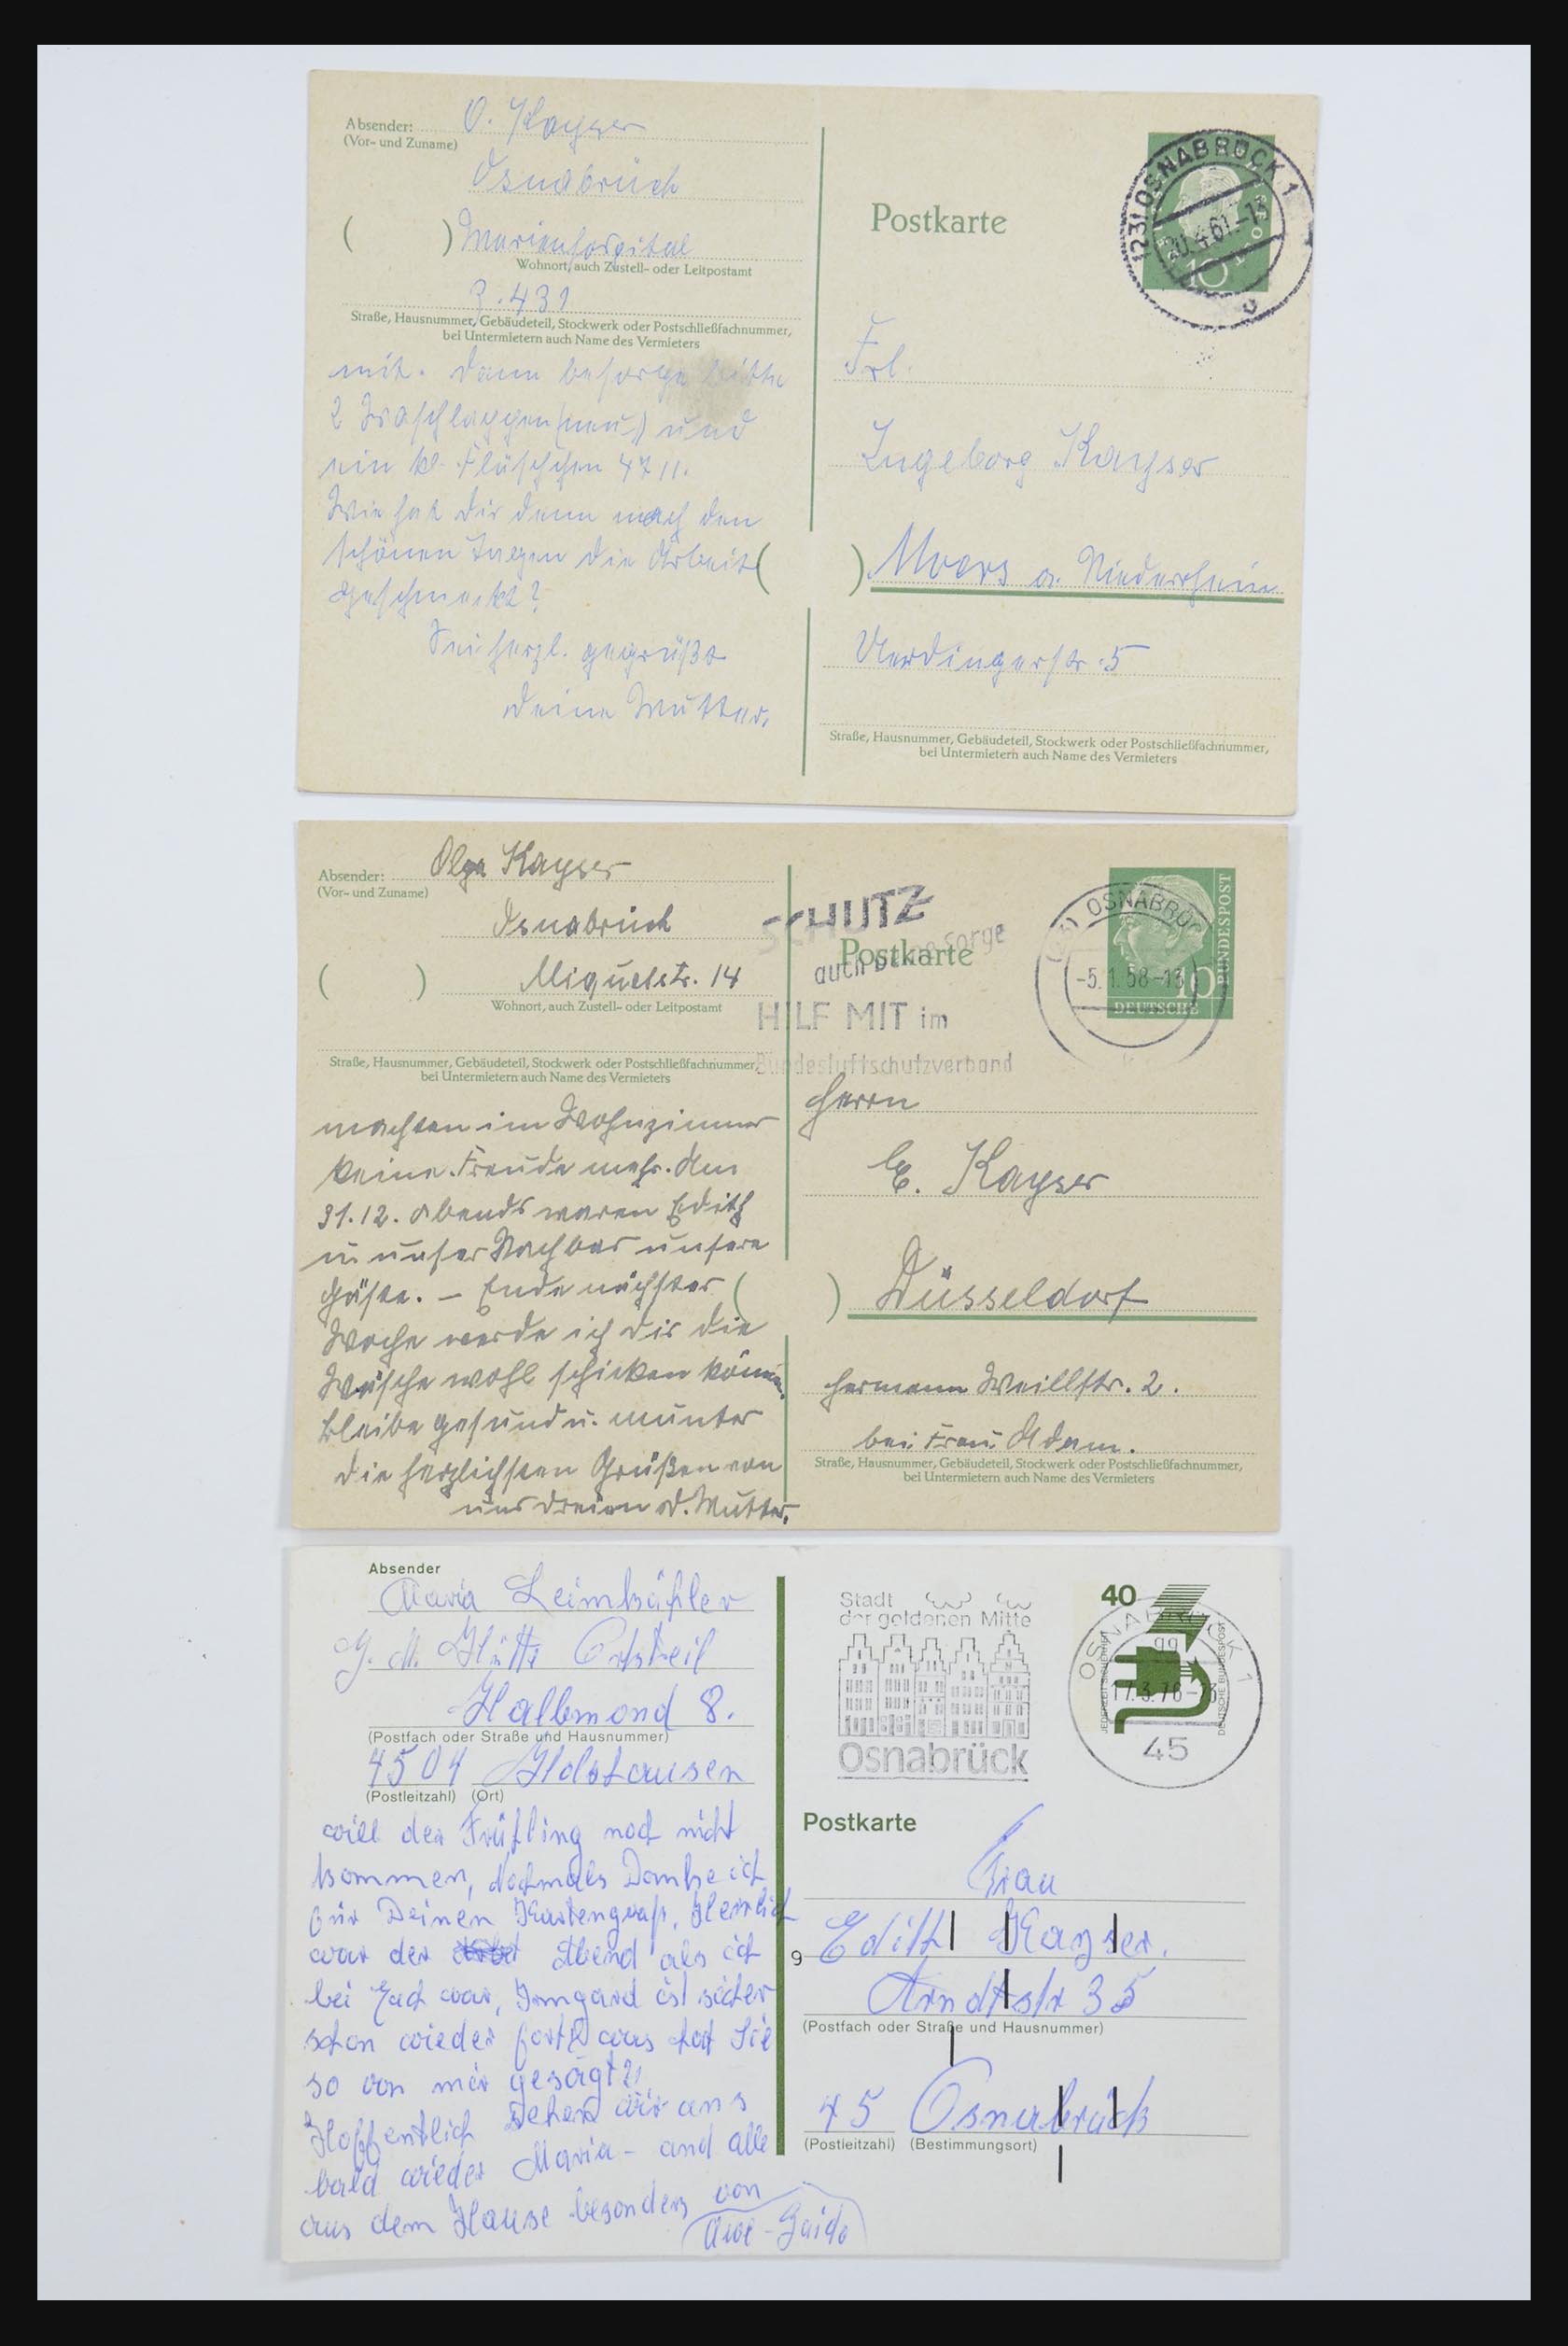 Absender: O. Kayser
(Vor- und Zuname)
Osnabrück
( ) Marienhospital
Wohnort, auch Zustell- oder Leitpostamt
Z. 431
Straße, Hausnummer, Gebäudeteil, Stockwerk oder Postschließfachnummer,
bei Untermietern auch Name des Vermieters
mit. Dann besorge bitte
2 Waschlappen (neu) und
ein kl. Fläschchen 4711.
Wie hat Dir denn nach den
schönen Tagen die Arbeit
geschmeckt?
Sei herzl. gegrüßt
Deine Mutter.
Postkarte
(23) OSNABRÜCK 1
30.4.61.-13
10
Frl.
Ingeborg Kayser
( ) Moers a. Niederrhein
Uerdingerstr. 5
Straße, Hausnummer, Gebäudeteil, Stockwerk oder Postschließfachnummer,
bei Untermietern auch Name des Vermieters
Absender: Olga Kayser
(Vor- und Zuname)
Osnabrück
( ) Miquelstr. 14
Wohnort, auch Zustell- oder Leitpostamt
Straße, Hausnummer, Gebäudeteil, Stockwerk oder Postschließfachnummer,
bei Untermietern auch Name des Vermieters
machten im Wohnzimmer
keine Freude mehr. Am
31.12. abends waren Edith
u unser Nachbar unsere
Gäste. – Ende nächster
Woche werde ich Dir die
Wäsche wohl schicken können.
Bleibe gesund u. munter
die herzlichsten Grüßen von
uns dreien D. Mutter.
SCHUTZ
auch Deine Sorge
HILF MIT im
Bundesluftschutzverband
Postkarte
(23) OSNABRÜCK
-5.1.58-13
10
DEUTSCHE
BUNDESPOST
Herrn
E. Kayser
( ) Düsseldorf
Hermann Weillstr. 2.
bei Frau Adam.
Straße, Hausnummer, Gebäudeteil, Stockwerk oder Postschließfachnummer,
bei Untermietern auch Name des Vermieters
Absender
Maria Leimkühler
G. M. Hütte Ortsteil
Hallemond 8.
(Postfach oder Straße und Hausnummer)
4504 Holzhausen
(Postleitzahl) (Ort)
will der Frühling noch nicht
kommen, Nochmals Danke ich
für Deinen Kartengruß, Herrlich
war der Abend als ich
bei Euch war, Irmgard ist sicher
schon wieder fort, was hat Sie
so von mir gesagt?
Hoffentlich sehen wir uns
bald wieder Maria - und alle
aus dem Hause besonders von
Uwe - Guido
Stadt
der goldenen Mitte
Osnabrück
40
JEDERZEIT SICHERHEIT
DEUTSCHE BUNDESPOST
OSNABRÜCK 1
99
17.3.76-13
45
Postkarte
Frau
9 Edith Kayser.
Arndtstr 35
(Postfach oder Straße und Hausnummer)
45 Osnabrück
(Postleitzahl) (Bestimmungsort)